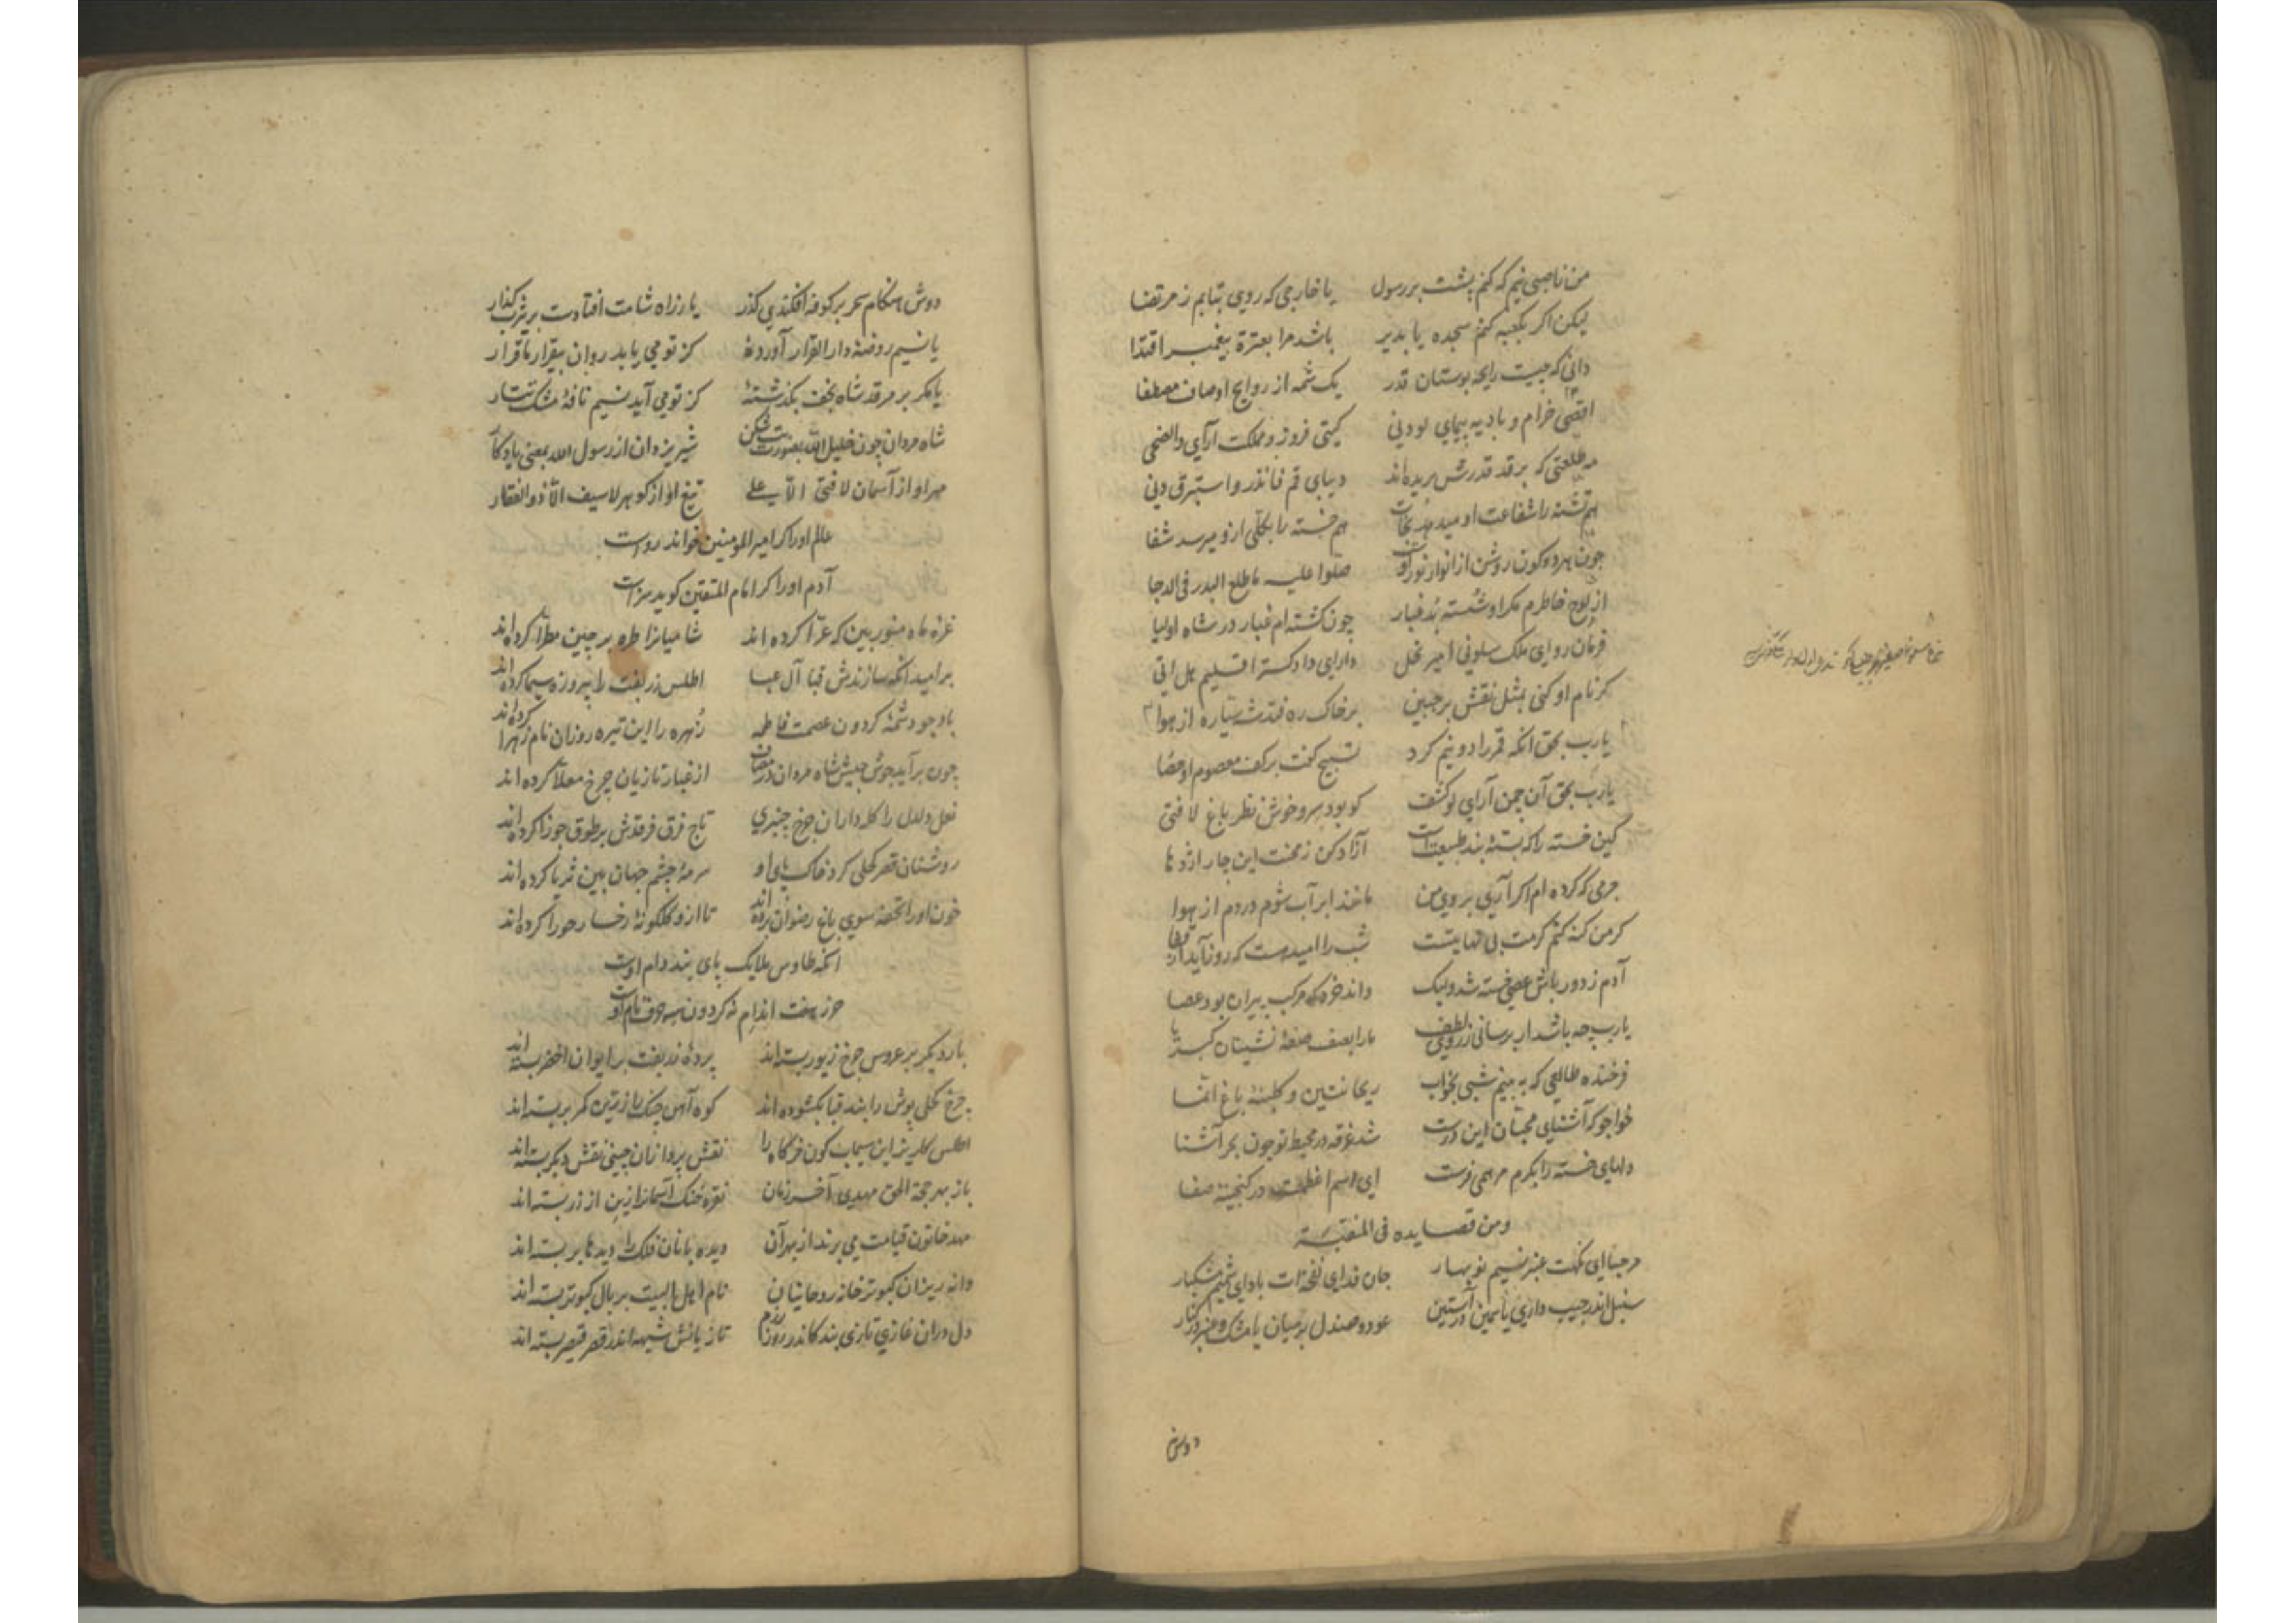 من ناصبی نیم که کنم پشت بر رسول یا خارجی که روی بتابم ز مرتضا
لیکن اکر بکعبه کنم سجده یا بدیر باشد مرا بعترة پیغمبر اقتدا
دانی که چیست رایحه بوستان قدر یک شمه از روایح اوصاف مصطفا
اقصی خرام و بادیه پیمای لو دنی کیتی فروز و مملکت آرای والضحی
مه طلعتی که بر قد قدرش بریده اند دیبای قم فانذر و استبرق دنی
هم تشنه را شفاعت او میدهد نجات هم خسته را بکلی ازو میرسد شفا
چون هر دو کون روشن از انوار نور اوست صلوا علیه ما طلع البدر فی الدجا
از لوح خاطرم مکر او شسته بد غبار چون کشته ام غبار در شاه اولیا
فرمان روای ملک سلونی امیر نحل دارای دادکستر اقلیم هل اتی
کر نام او کنی بمثل نقش بر جبین بر خاک ره فتد شه سیاره از هوا
یا رب بحق آنکه قمر را دو نیم کرد تسبیح کفت بر کف معصوم او حصا
یا رب بحق آن چمن آرای لو کشف کو بود سرو خوش نظر باغ لا فتی
کین خسته را که بستهٔ بند طبیعتست آزاد کن ز محنت این چار اژدها
جرمی که کرده ام اکر آری بروی من مانند ابر آب شوم در دم از هوا
کر من کنه کنم کرمت بی نهایتست شب را امید هست که روز آید از قفا
آدم ز دور باش عصی خسته شد ولیک داند خرد که مرکب پیران بود عصا
یا رب چه باشد ار برسانی ز روی لطف ما را بصف صفهٔ نشینان کبریا
فرخنده طالعی که به بینم شبی بخواب ریحانتین و کلبنهٔ باغ انما
خواجو که آشنای محبان این درست شد غرقه در محیط تو چون بحر آشنا
دلهای خسته را بکرم مرهمی فرست ای اسم اعظمت در کنجینهٔ صفا
ومن قصایده فی المنقبة
مرحبا ای نکهت عنبر نسیم نوبهار جان فدای نفحه ات باد ای شمیم مشکبار
سنبل اندر جیب داری یا سمین در آستین عود و صندل بر میان یا مشک و عنبر در کنار
دوش
دوش هنکام سحر بر کوفه افکندی کذر یا ز راه شامت افتادست بر یثرب کذار
یا نسیم روضهٔ دار القرار آوردهٔ کز تو می یابد روان بیقرار ما قرار
یا مکر بر مرقد شاه نجف بکذشتهٔ کز تو می آید نسیم نافهٔ مشک تتار
شاه مردان چون خلیل الله بصورت بت شکن شیر یزدان از رسول الله بمعنی یادکار
مهر او از آسمان لا فتی الا علی تیغ او از کوهر لا سیف الا ذو الفقار
عالم او را کر امیر المومنین خواند رواست
آدم او را کر امام المتقین کوید سزاست
غرهٔ ماه منور بین که غرا کرده اند شامیانرا طره بر چین مطرا کرده اند
بر امید آنکه سازندش قبا آل عبا اطلس زربفت را پیروزه سیما کرده اند
با وجود شمهٔ کردون عصمت فاطمه زهره را این تیره روزان نام زهرا کرده اند
چون برآید جوش جیش شاه مردان در مصاف از غبار تازیان چرخ معلا کرده اند
نعل دلدل را کله داران چرخ چنبری تاج فرق فرقدش بر طوق جوزا کرده اند
روشنان قصر کحلی کرد خاک پای او سرمهٔ چشم جهان بین ثریا کرده اند
خون او را تحفه سوی باغ رضوان برده اند تا ازو کلکونهٔ رخسار حورا کرده اند
آنکه طاوس ملایک پای بند دام اوست
حرز هفت اندام نه کردون سه حرف نام اوست
بار دیکر بر عروس چرخ زیور بسته اند پردهٔ زربفت بر ایوان اخضر بسته اند
چرخ کحلی پوش را بند قبا بکشوده اند کوه آهن چنک را زرین کمر بر بسته اند
اطلس کلریز این سیماب کون خرکاه را نقش پردازان چینی نقش دیکر بسته اند
باز بهر حجة الحق مهدی آخر زمان نقره خنک آسمانرا زین از زر بسته اند
مهد خاتون قیامت می برند از بهر آن دیده بانان فلک را دیدها بر بسته اند
دانه ریزان کبوتر خانهٔ روحانیان نام اهل البیت بر بال کبوتر بسته اند
دل دران غازی تازی بند کاندر روز رزم تازیانش شیهه اندر قصر قیصر بسته اند